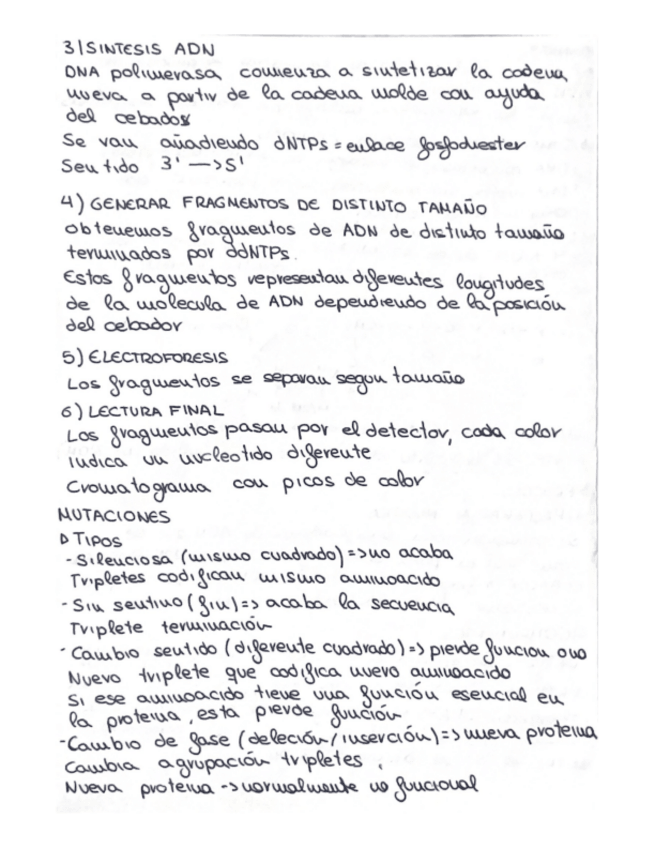 3) SINTESIS ADN
DNA polimerasa comienza a sintetizar la cadena
nueva a partir de la cadena molde con ayuda
del cebados
Se van añadiendo dNTPs = enlace fosfodiester
Sentido 3' —> 5'
4) GENERAR FRAGMENTOS DE DISTINTO TAMAÑO
Obtenemos fragmentos de ADN de distinto tamaño
terminados por ddNTPs.
Estos fragmentos representan diferentes longitudes
de la molecula de ADN dependiendo de la posición
del cebador
5) ELECTROFORESIS
Los fragmentos se separan segun tamaño
6) LECTURA FINAL
Los fragmentos pasan por el detector, cada color
indica un nucleotido diferente
Cromatograma con picos de color
MUTACIONES
▷ TIPOS
- Silenciosa (mismo cuadrado) => no acaba
Tripletes codifican mismo aminoacido
- Sin sentino (fin) => acaba la secuencia
Triplete terminación
- Cambio sentido (diferente cuadrado) => pierde funcion o no
Nuevo triplete que codifica nuevo aminoacido
Si ese aminoacido tiene una función esencial en
la proteina, esta pierde función.
- Cambio de fase (deleción/inserción) => nueva proteina
Cambia agrupación tripletes.
Nueva proteina -> normalmente no funcional